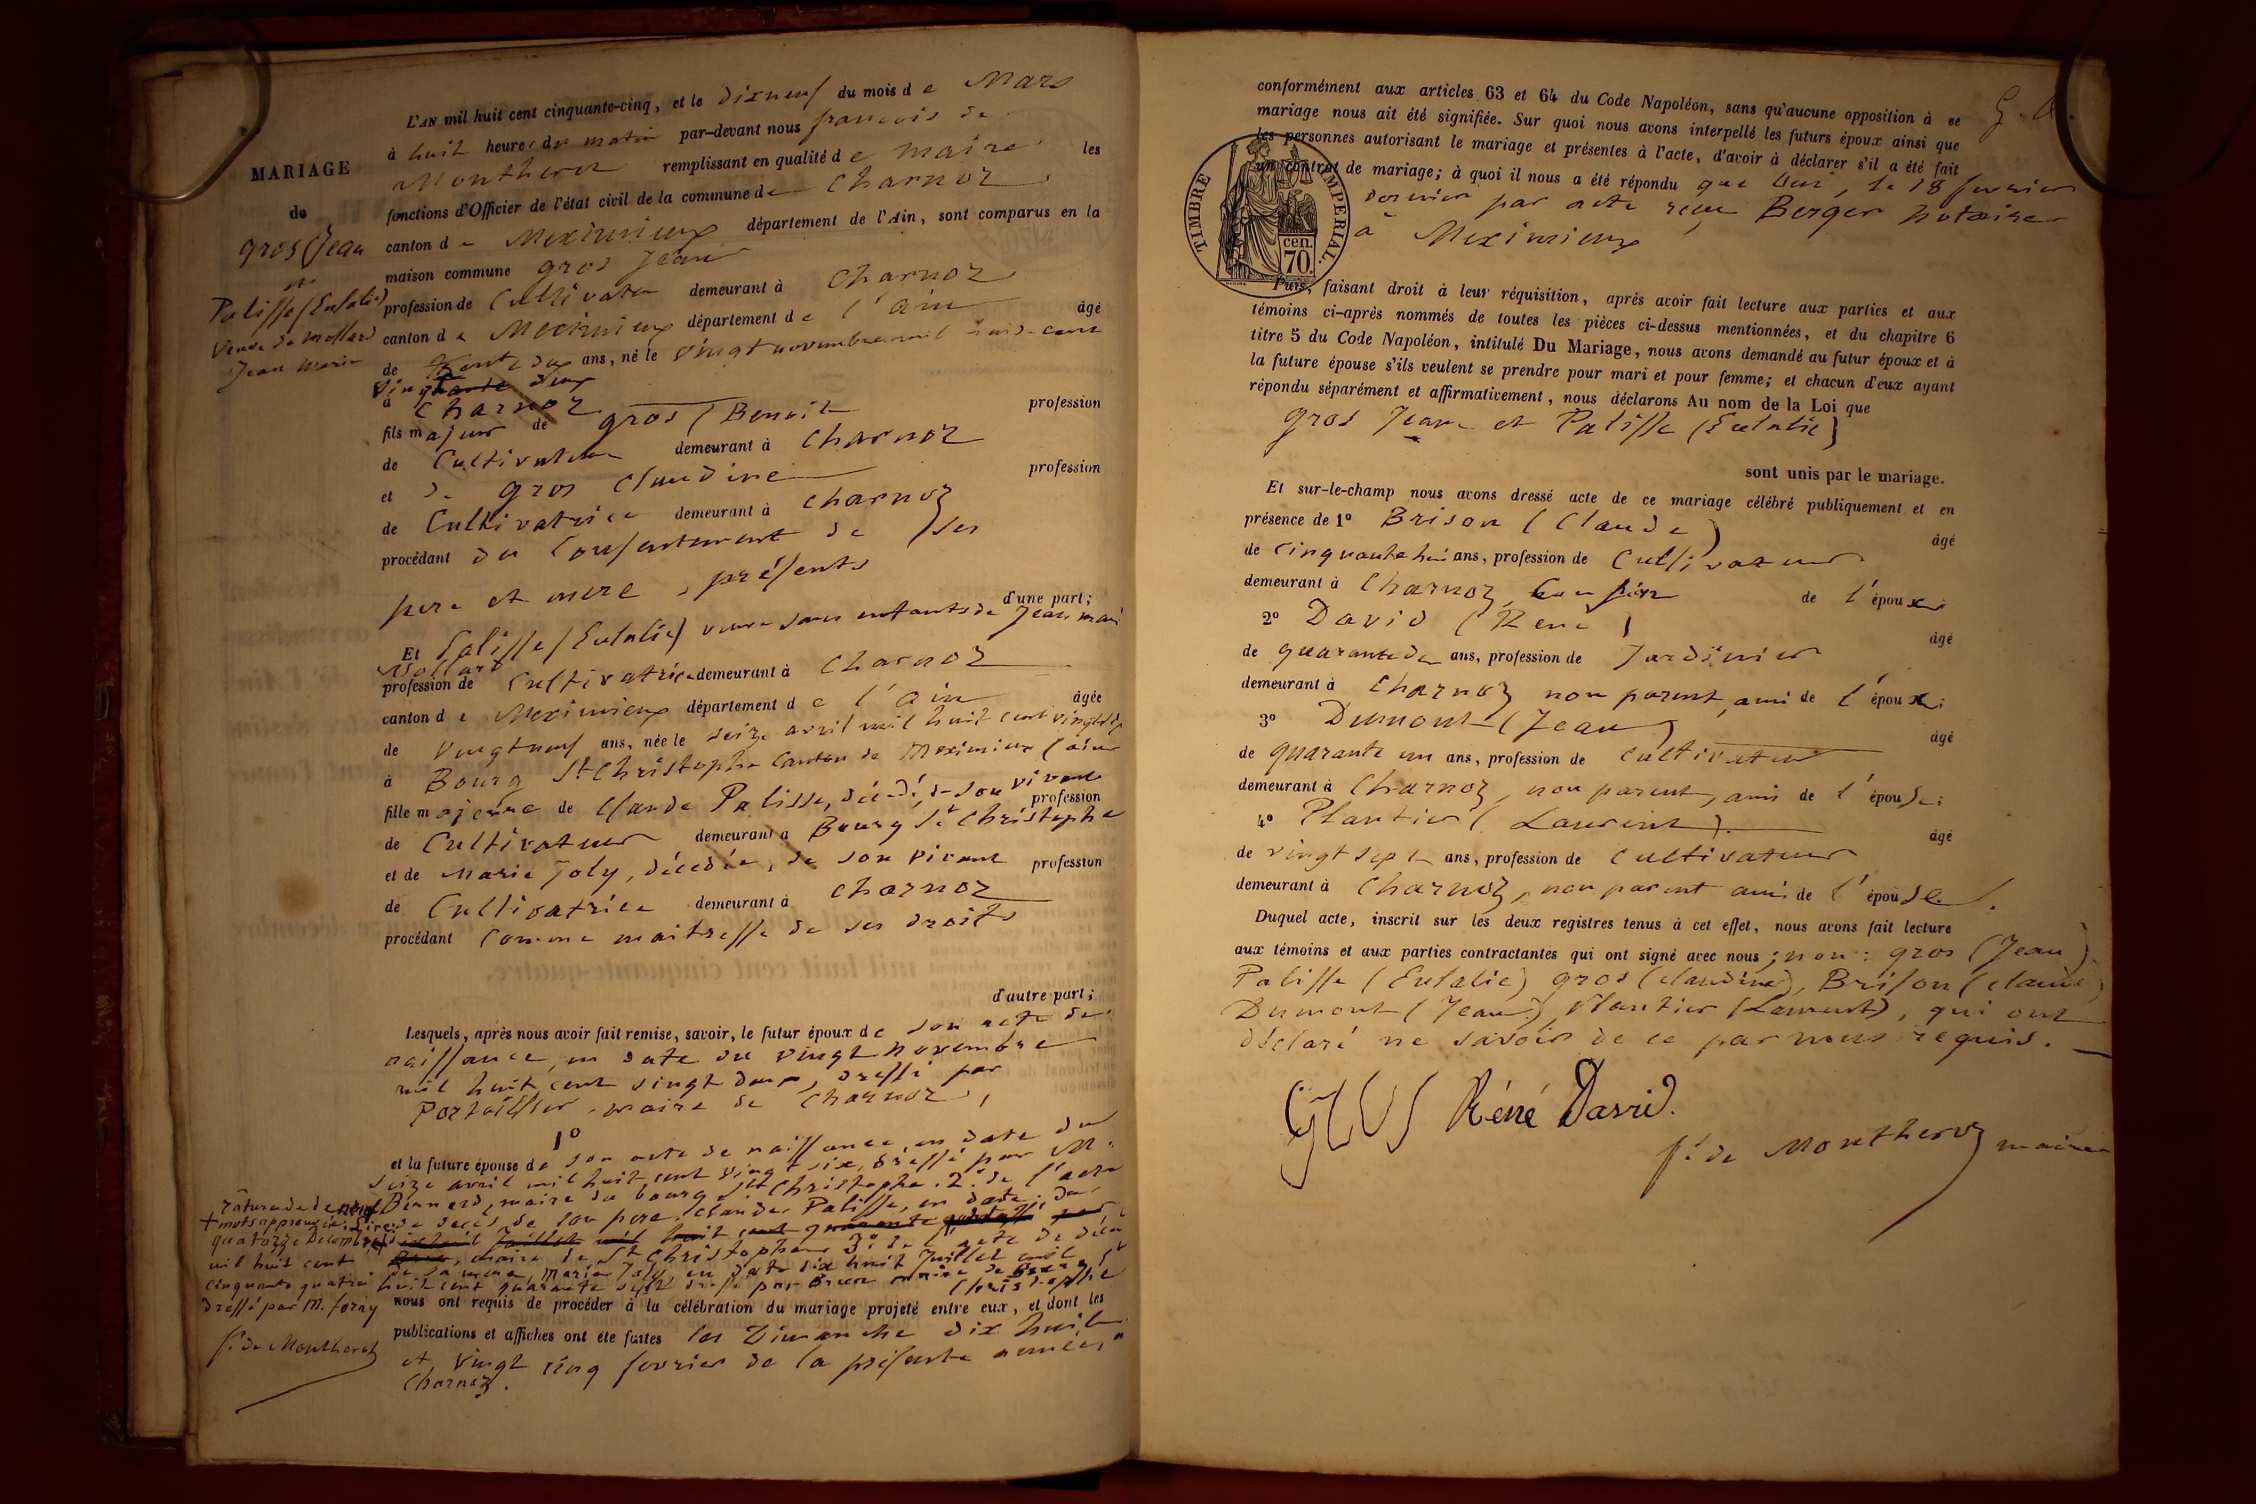 MARIAGE
de
gros (Jean
et
Palisse (Eulalie)
veuve de mollard
Jean Marie
L'AN mil huit cent cinquante-cinq, et le dixneuf du mois de Mars
à huit heures du matin par-devant nous françois de
Montherot remplissant en qualité de maire les
fonctions d'Officier de l'état civil de la commune de Charnoz
canton de Meximieux département de l'Ain, sont comparus en la
maison commune gros Jean
profession de Cultivateur demeurant à Charnoz
canton de Meximieux département de l'ain âgé
de trente deux ans, né le vingt novembre mil huit-cent
vingt deux
à Charnoz
fils majeur de gros (Benoit profession
de Cultivateur demeurant à Charnoz
et de gros Claudine profession
de Cultivatrice demeurant à Charnoz
procédant du Consentement de ses
pere et mere, présents
d'une part;
Et Palisse (Eulalie) veuve sans enfants de Jean marie
Mollard
profession de Cultivatrice demeurant à Charnoz
canton de Meximieux département de l'ain âgée
de vingtneuf ans, née le seize avril mil huit cent vingt six
à Bourg St Christophe Canton de Meximieux (ain
fille majeure de Claude Palisse, décédé, de son vivant profession
de Cultivateur demeurant à Bourg St Christophe
et de Marie Joly, décédée, de son vivant profession
de Cultivatrice demeurant à Charnoz
procédant Comme maitresse de ses droits
d'autre part;
Lesquels, après nous avoir fait remise, savoir, le futur époux de son acte de
naissance, en date du vingt novembre
mil huit cent vingt deux, dressé par
Portaillier maire de Charnoz,
1°
et la future épouse de son acte de naissance, en date du
seize avril mil huit cent vingt six, dressé par M.
Bernerd, maire du bourg St Christophe. 2° de l'acte
de décès de son pere Claude Palisse, en date du
dixhuit juillet mil huit cent quarante par
maire de St Christophe 3° de l'acte de décès
de sa mere, Marie Joly, en date dix huit Juillet mil
huit cent quarante sept dressé par maire de Bourg St
Christophe
rature de de
+ mots approuvée. Lire:
quatorze Decembre
mil huit cent
cinquante quatre
dressé par M. foray
f. de Montherot
nous ont requis de procéder à la célébration du mariage projeté entre eux, et dont les
publications et affiches ont été faites les Dimanche dix huit
et vingt cinq fevrier de la présente année, a
Charnoz.
conformément aux articles 63 et 64 du Code Napoléon, sans qu'aucune opposition à se
mariage nous ait été signifiée. Sur quoi nous avons interpellé les futurs époux ainsi que
les personnes autorisant le mariage et présentes à l'acte, d'avoir à déclarer s'il a été fait
un contrat de mariage; à quoi il nous a été répondu que Oui, le 18 fevrier
dernier par acte reçu Berger notaire
à Meximieux
TIMBRE IMPERIAL.
70 cen.
Puis, faisant droit à leur réquisition, après avoir fait lecture aux parties et aux
témoins ci-après nommés de toutes les pièces ci-dessus mentionnées, et du chapitre 6
titre 5 du Code Napoléon, intitulé Du Mariage, nous avons demandé au futur époux et à
la future épouse s'ils veulent se prendre pour mari et pour femme; et chacun d'eux ayant
répondu séparément et affirmativement, nous déclarons Au nom de la Loi que
gros Jean et Palisse (Eulalie)
sont unis par le mariage.
Et sur-le-champ nous avons dressé acte de ce mariage célébré publiquement et en
présence de 1° Brison (Claude) âgé
de cinquante huit ans, profession de Cultivateur
demeurant à Charnoz, Cousin de l'époux
2° David (René) âgé
de quarante de ans, profession de Jardinier
demeurant à Charnoz non parent, ami de l'époux;
3° Dumont (Jean) âgé
de quarante un ans, profession de cultivateur
demeurant à Charnoz, non parent, ami de l'épouse;
4° Plantier (Laurent). âgé
de vingt sept ans, profession de Cultivateur
demeurant à Charnoz, non parent ami de l'épouse.
Duquel acte, inscrit sur les deux registres tenus à cet effet, nous avons fait lecture
aux témoins et aux parties contractantes qui ont signé avec nous; non: gros (Jean)
Palisse (Eulalie) gros (claudine), Brison (claude)
Dumont (Jean) Plantier (Laurent), qui ont
déclaré ne savoir de ce par nous requis.
GROS René David.
f. de Montherot maire